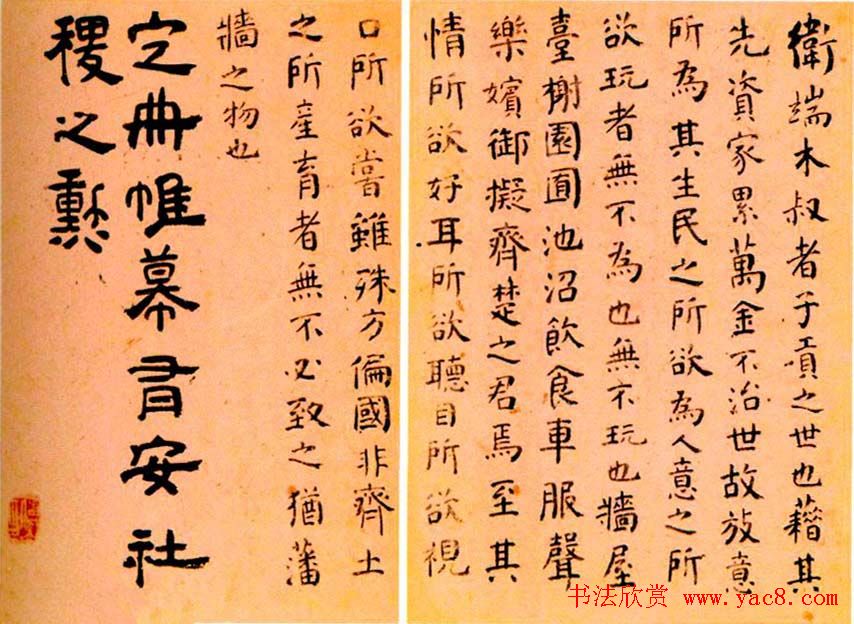 衛端木叔者子貢之世也藉其
先資家累萬金不治世故放意
所為其生民之所欲為人意之所
欲玩者無不為也無不玩也牆屋
臺榭園囿池沼飲食車服聲
樂嬪御擬齊楚之君焉至其
情所欲好耳所欲聽目所欲視
口所欲嘗雖殊方偏國非齊土
之所產育者無不必致之猶藩
牆之物也
定冊帷幕有安社
稷之勳
书法欣赏 www.yac8.com